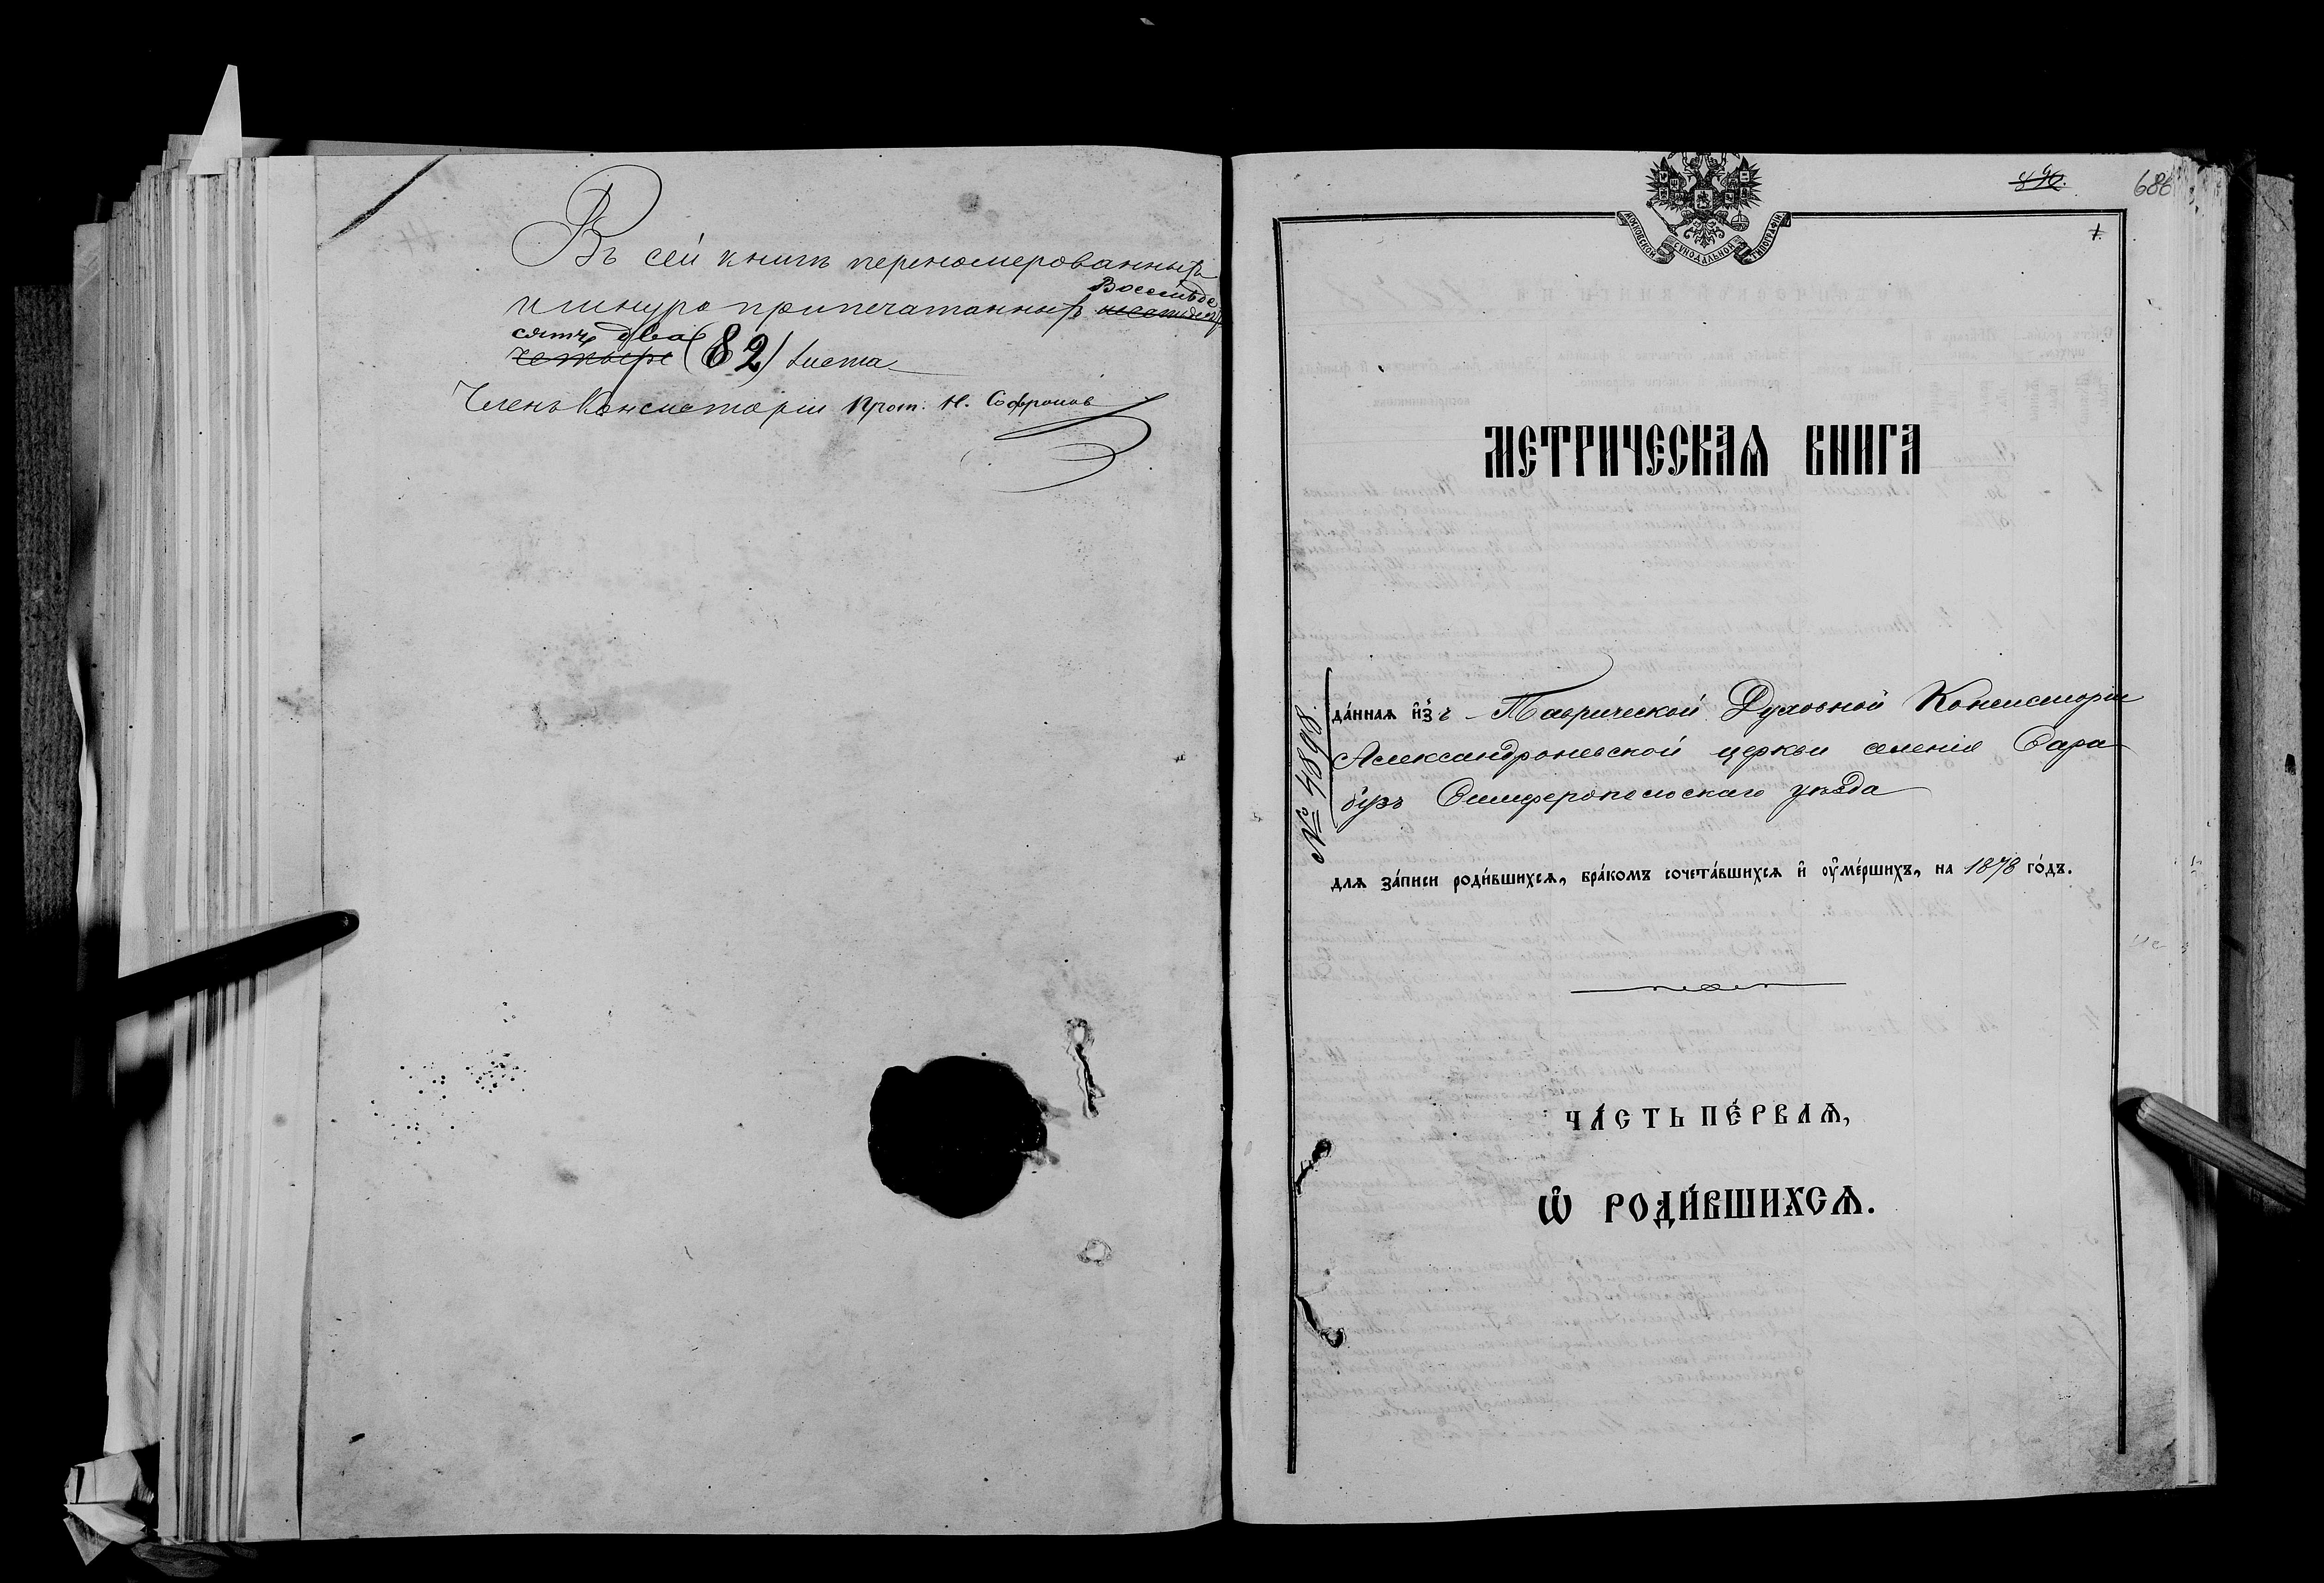 Въ сей книгѣ перенომерованныхъ
и шнуро припечатанныхъ шестьдесят Восемьде
сятъ два
четыре (82) листа
Членъ Консисторіи Прот. Н. Софроновъ
МОСКОВСКОЙ СѴНОДАЛЬНОЙ ТИПОГРАФІИ
896.
686
1.
МЕТРИЧЕСКАѦ КНИГА
№ 4898
да́ннаѧ и҆́зъ Таврической Духовной Консисторіи
Александроневской церкви селенія Сара
бузъ Симферопольскаго уѣзда
для за́писи роди́вшихсѧ, бра́комъ сочета́вшихсѧ и҆ оу҆ме́ршихъ, на 1878 го́дъ.
ЧА́СТЬ ПЕ́РВАѦ,
Ѡ҆ РОДИ́ВШИХСѦ.